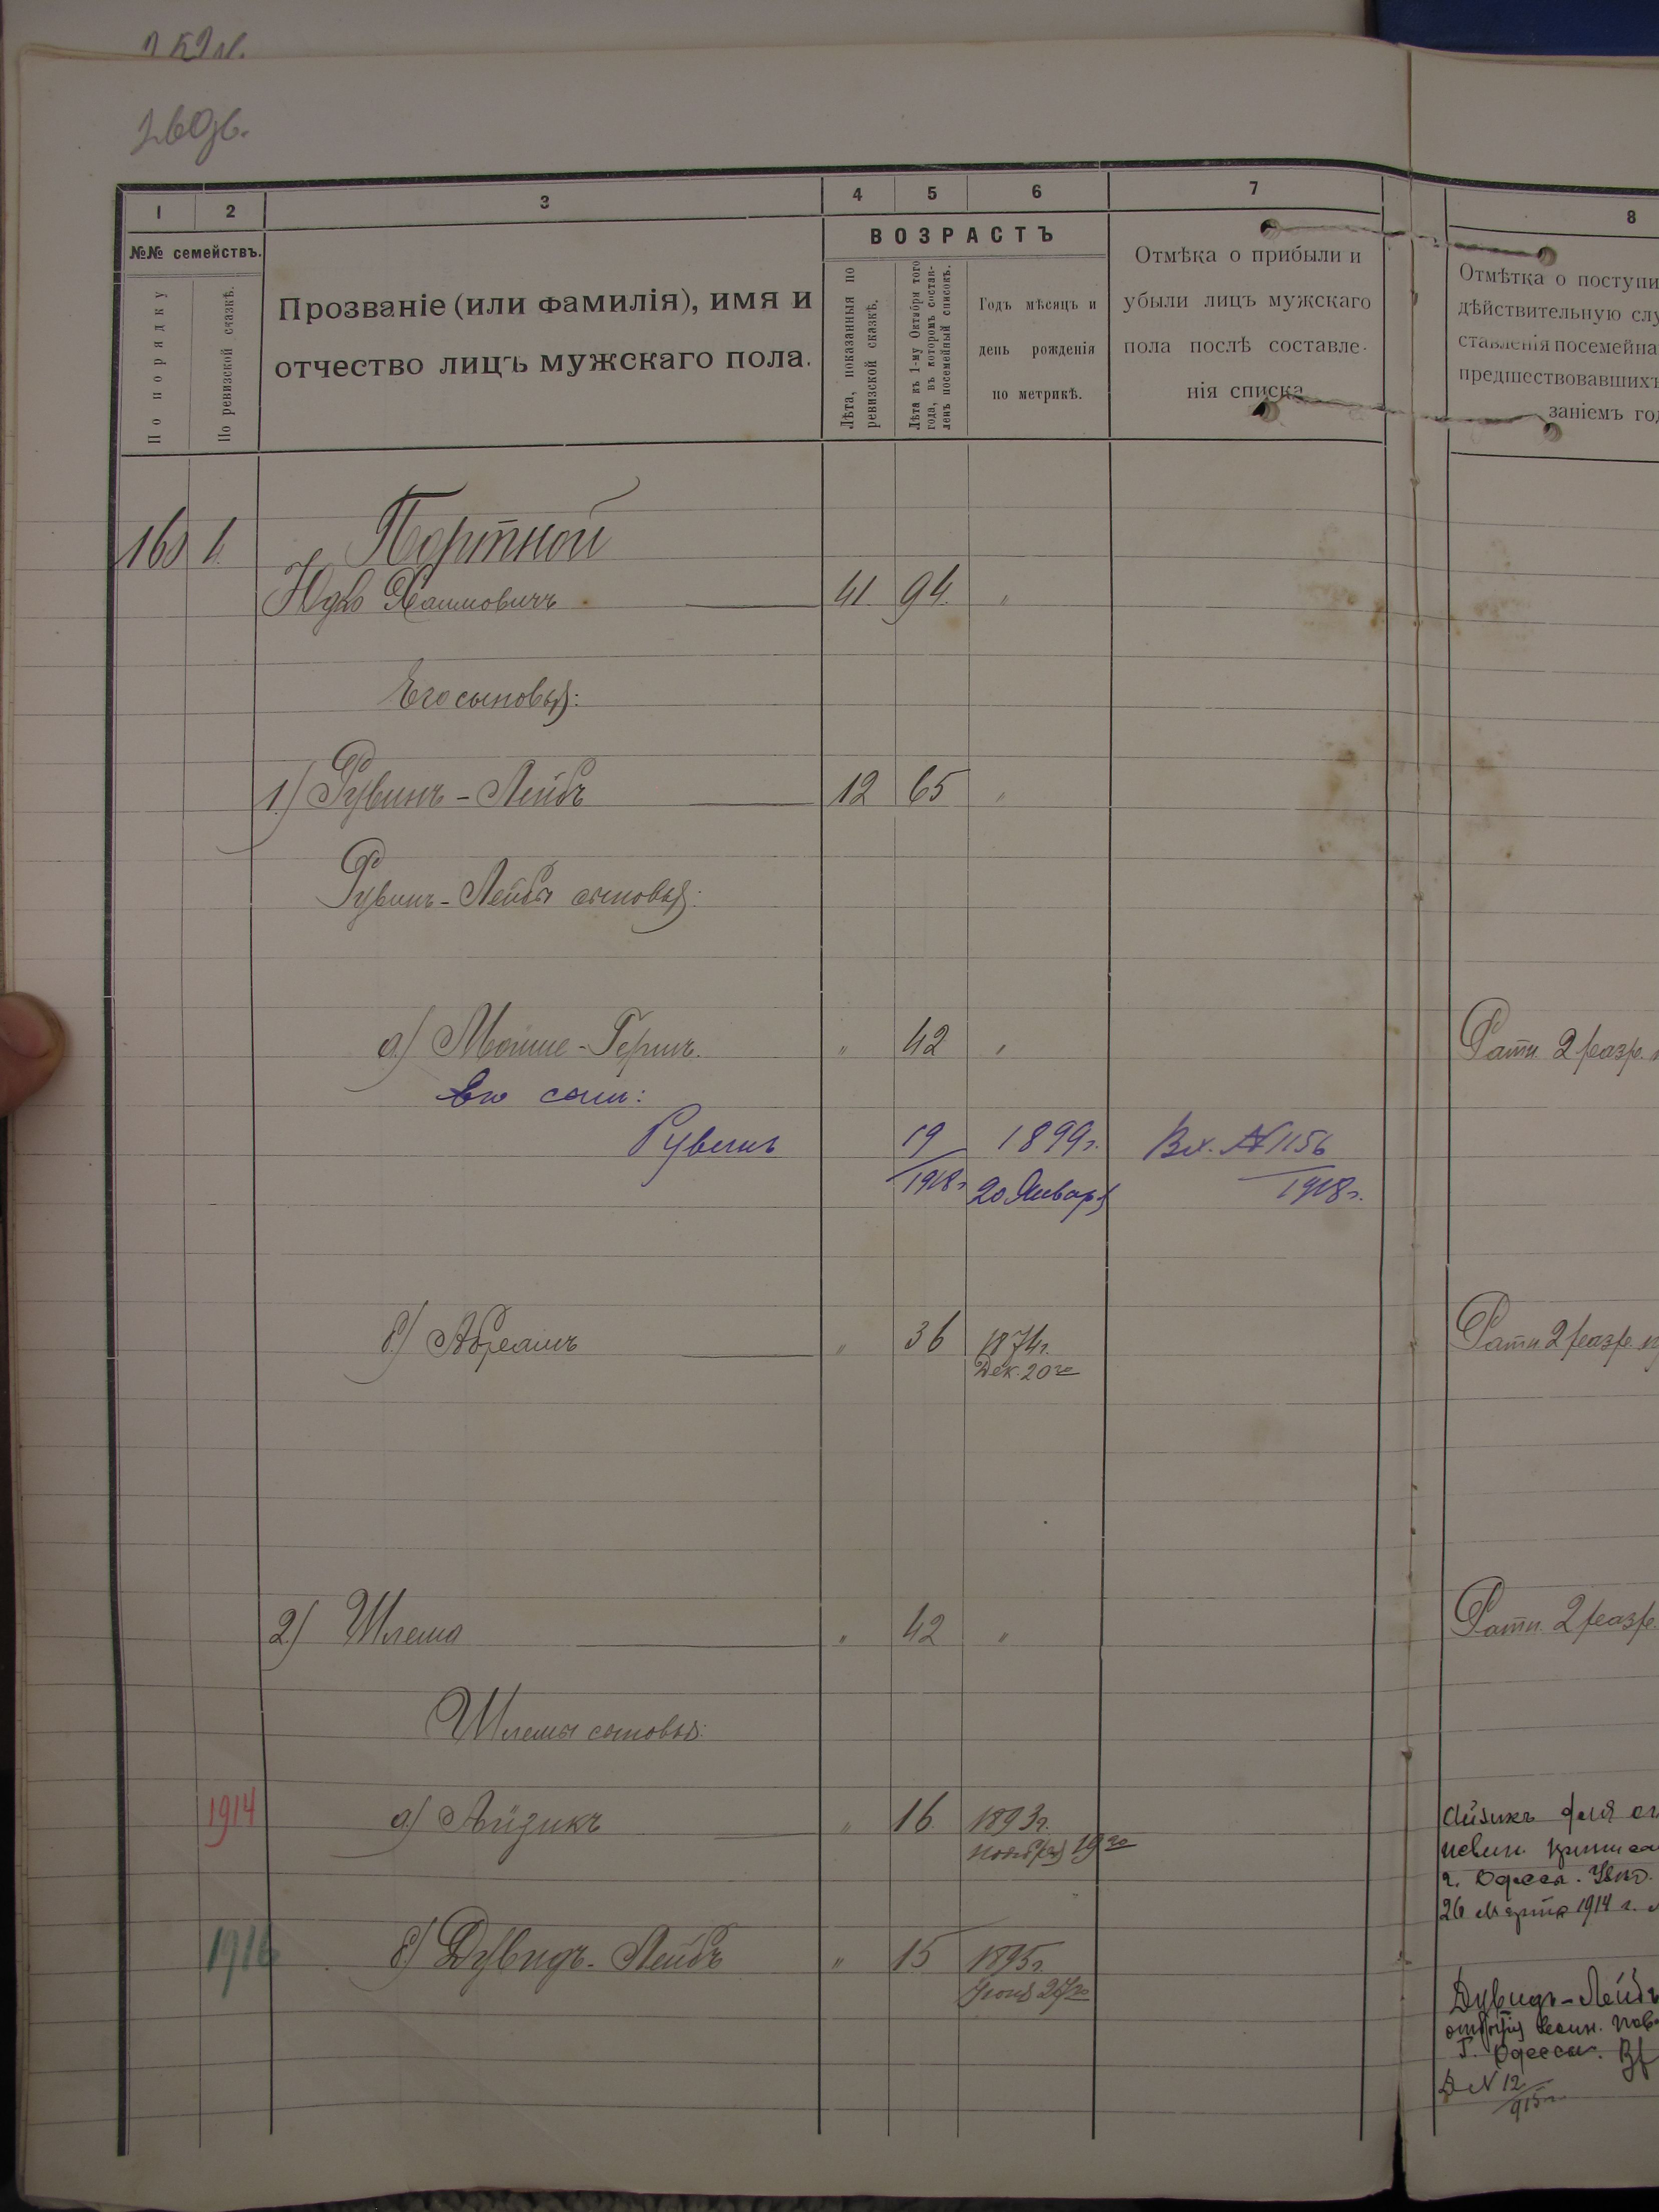 260б.
1 2 3 4 5 6 7 8
№№ семействъ.
По порядку
По ревизской сказкѣ.
Прозваніе (или фамилія), имя и
отчество лицъ мужскаго пола.
ВОЗРАСТЪ
Лѣта, показанныя по
ревизской сказкѣ.
Лѣта къ 1-му Октября того
года, въ которомъ состав-
ленъ посемейный списокъ.
Годъ мѣсяцъ и
день рожденія
по метрикѣ.
Отмѣка о прибыли и
убыли лицъ мужскаго
пола послѣ составле-
нія списка
Отмѣтка о поступи
дѣйствительную слу
ставленія посемейна
предшествовавшихъ
заніемъ год
160 1. Портной
Юдко Хаимовичъ 41. 94. "
Его сыновья:
1.) Рувинъ-Лейбъ 12 65 "
Рувинъ-Лейба сыновья:
а) Мошие-Гершъ. " 42 " Ратн. 2 разр.
Его сынъ:
Рувинъ 19 1899г. Вх. №1156
1918г 20 Января 1918г.
б) Абрамъ " 36 1874г. Ратн 2 разр.
Дек. 20го
2) Шлема " 42 " Ратн. 2 разр.
Шлемы сыновья:
1914 а) Айзикъ " 16 1893г.
ноября 19го
Айзикъ для от
повин. приписа
г. Одессы.
26 Марта 1914 г.
1916 б) Дувидъ-Лейбъ " 15 1895г
27го
Дувидъ-Лейбъ
воин. пов
г. Одессы.
Д №12
915г